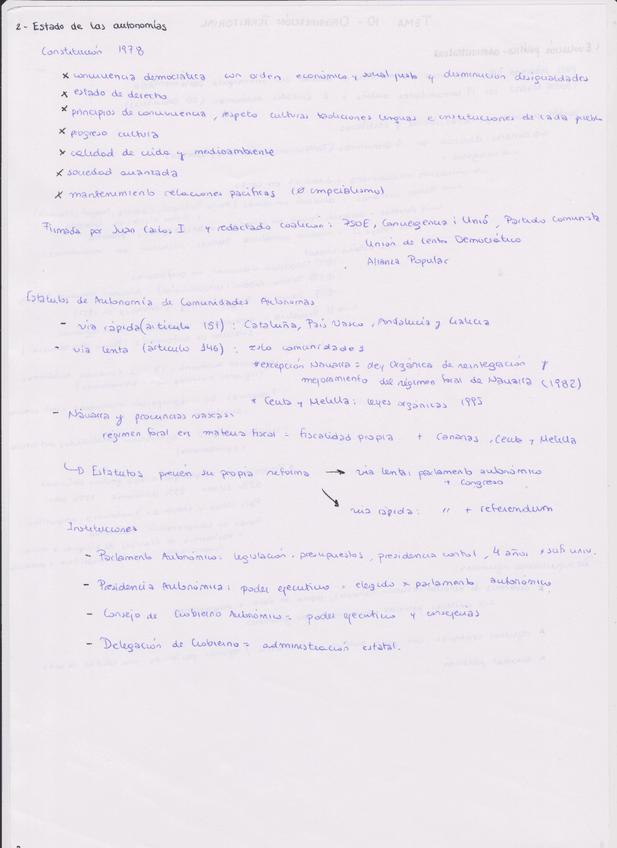 2- Estado de las autonomías
Constitución 1978
x convivencia democrática con orden económico y social justo y disminución desigualdades
x estado de derecho
x principios de convivencia, respeto culturas tradiciones lenguas e instituciones de cada pueblo
x progreso cultura
x calidad de vida y medioambiente
x sociedad avanzada
x mantenimiento relaciones pacíficas (Ø imperialismo)
Firmada por Juan Carlos I y redactado coalición: PSOE, Convergencia i Unió, Partido Comunista
Unión de Centro Democrático
Alianza Popular
Estatutos de Autonomía de Comunidades Autónomas
- vía rápida (artículo 151): Cataluña, País Vasco, Andalucía y Galicia
- vía lenta (artículo 146): resto comunidades
*excepción Navarra = Ley Orgánica de reintegración y
mejoramiento del régimen foral de Navarra (1982)
* Ceuta y Melilla: leyes orgánicas 1995
- Navarra y provincias vascas:
régimen foral en materia fiscal = fiscalidad propia + Canarias, Ceuta y Melilla
↳ Estatutos prevén su propia reforma → vía lenta: parlamento autonómico
+ Congreso
↘ vía rápida: " + referendum
Instituciones
- Parlamento Autonómico: legislación, presupuestos, presidencia control, 4 años x suf. univ.
- Presidencia Autonómica: poder ejecutivo = elegido x parlamento autonómico
- Consejo de Gobierno Autonómico = poder ejecutivo y consejerías
- Delegación de Gobierno = administración estatal.